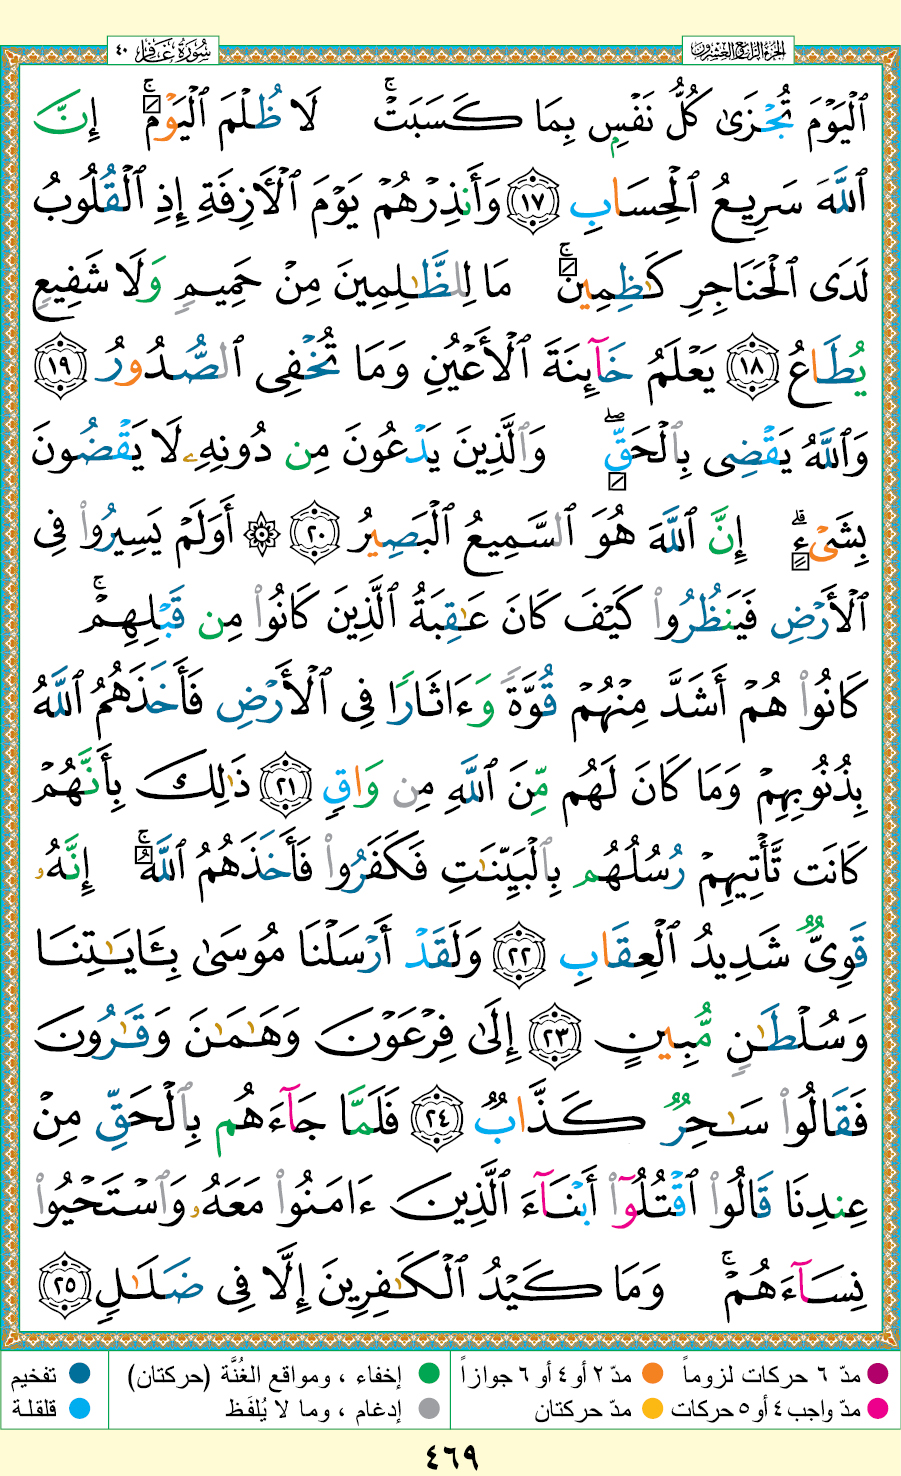 الجزء الرابع والعشرون
سُورَةُ غَافِر ٤٠
ٱلْيَوْمَ تُجْزَىٰ كُلُّ نَفْسٍۭ بِمَا كَسَبَتْ ۚ لَا ظُلْمَ ٱلْيَوْمَ ۚ إِنَّ
ٱللَّهَ سَرِيعُ ٱلْحِسَابِ ١٧ وَأَنذِرْهُمْ يَوْمَ ٱلْـَٔازِفَةِ إِذِ ٱلْقُلُوبُ
لَدَى ٱلْحَنَاجِرِ كَـٰظِمِينَ ۚ مَا لِلظَّـٰلِمِينَ مِنْ حَمِيمٍ وَلَا شَفِيعٍ
يُطَاعُ ١٨ يَعْلَمُ خَآئِنَةَ ٱلْأَعْيُنِ وَمَا تُخْفِى ٱلصُّدُورُ ١٩
وَٱللَّهُ يَقْضِى بِٱلْحَقِّ ۖ وَٱلَّذِينَ يَدْعُونَ مِن دُونِهِۦ لَا يَقْضُونَ
بِشَىْءٍ ۗ إِنَّ ٱللَّهَ هُوَ ٱلسَّمِيعُ ٱلْبَصِيرُ ٢٠ ۞ أَوَلَمْ يَسِيرُوا۟ فِى
ٱلْأَرْضِ فَيَنظُرُوا۟ كَيْفَ كَانَ عَـٰقِبَةُ ٱلَّذِينَ كَانُوا۟ مِن قَبْلِهِمْ ۚ
كَانُوا۟ هُمْ أَشَدَّ مِنْهُمْ قُوَّةً وَءَاثَارًا فِى ٱلْأَرْضِ فَأَخَذَهُمُ ٱللَّهُ
بِذُنُوبِهِمْ وَمَا كَانَ لَهُم مِّنَ ٱللَّهِ مِن وَاقٍ ٢١ ذَٰلِكَ بِأَنَّهُمْ
كَانَت تَّأْتِيهِمْ رُسُلُهُم بِٱلْبَيِّنَـٰتِ فَكَفَرُوا۟ فَأَخَذَهُمُ ٱللَّهُ ۚ إِنَّهُۥ
قَوِىٌّ شَدِيدُ ٱلْعِقَابِ ٢٢ وَلَقَدْ أَرْسَلْنَا مُوسَىٰ بِـَٔايَـٰتِنَا
وَسُلْطَـٰنٍ مُّبِينٍ ٢٣ إِلَىٰ فِرْعَوْنَ وَهَـٰمَـٰنَ وَقَـٰرُونَ
فَقَالُوا۟ سَـٰحِرٌ كَذَّابٌ ٢٤ فَلَمَّا جَآءَهُم بِٱلْحَقِّ مِنْ
عِندِنَا قَالُوا۟ ٱقْتُلُوٓا۟ أَبْنَآءَ ٱلَّذِينَ ءَامَنُوا۟ مَعَهُۥ وَٱسْتَحْيُوا۟
نِسَآءَهُمْ ۚ وَمَا كَيْدُ ٱلْكَـٰفِرِينَ إِلَّا فِى ضَلَـٰلٍ ٢٥
مدّ ٦ حركات لزوماً مدّ ٢ أو ٤ أو ٦ جوازاً إخفاء ، ومواقع الغُنَّة (حركتان) تفخيم
مدّ واجب ٤ أو ٥ حركات مدّ حركتان إدغام ، وما لا يُلفَظ قلقلة
٤٦٩